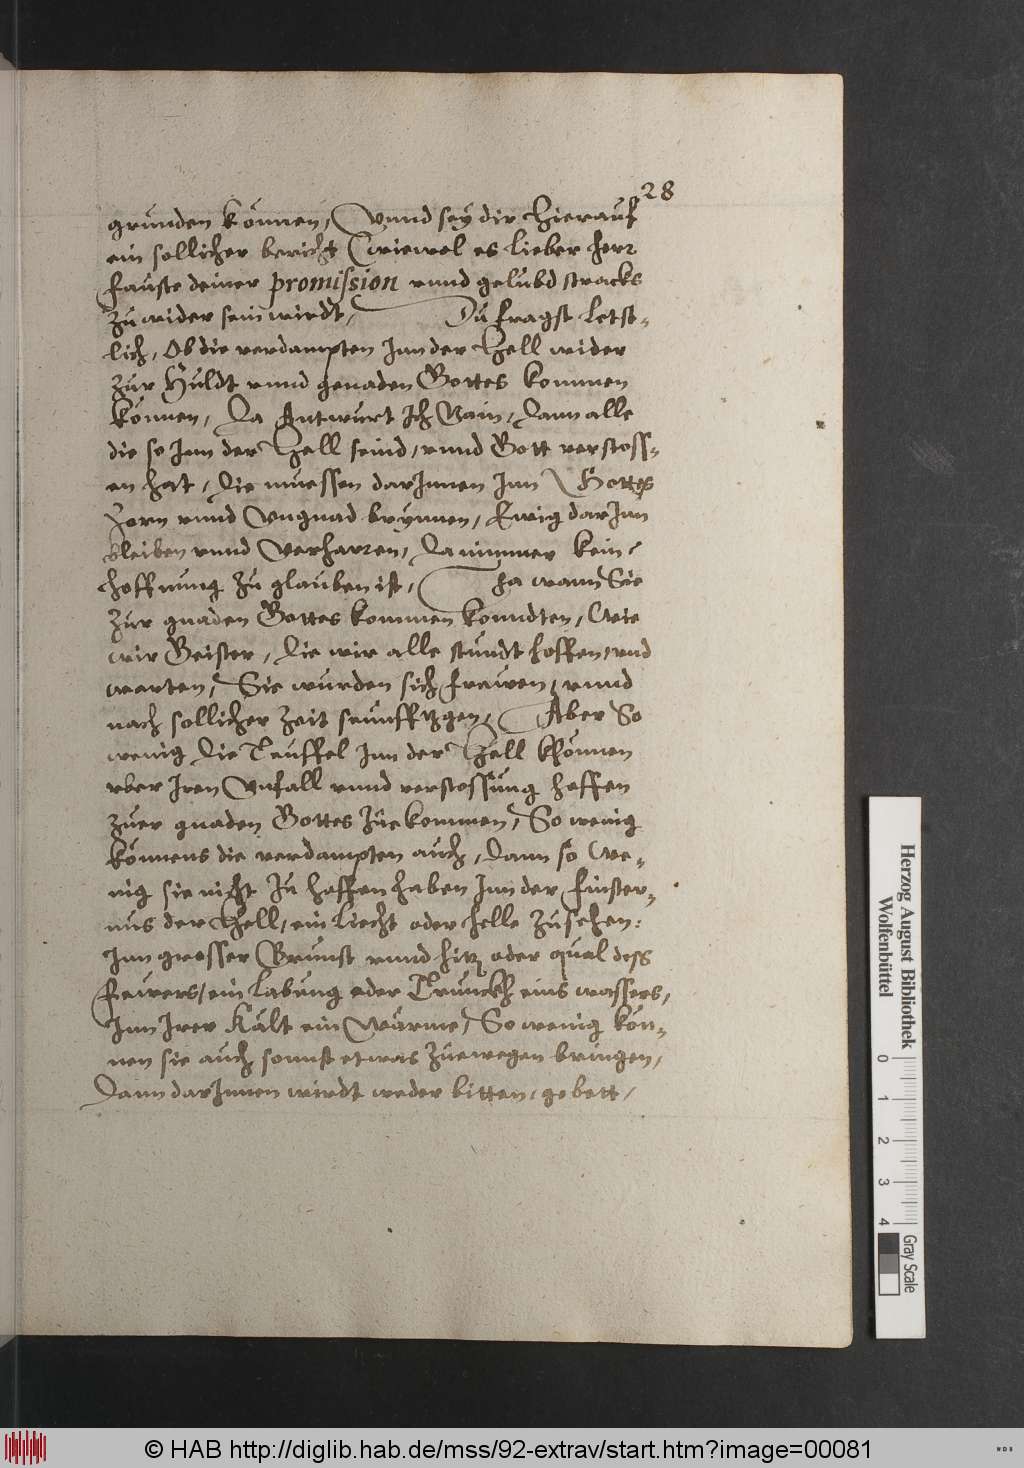 28
grunden können, Vnnd sey dir hierauf
ein sollicher bericht (wiewol es lieber herr
Fauste deiner promission vnnd gelubd stracks
zuwider sein wirdt, Du fragst letst-
lich, Ob die verdampten Inn der Hell wider
zur Huldt vnnd genaden Gottes kommen
können, Da Antwurt Ich Nain, Dann alle
die so Inn der Hell seind, vnnd Gott verstoss-
en hat, Die muessen darInnen Inn Gottes
Zorn vnnd Vngnad brynnen, Ewig darInn
bleiben vnnd Verharren, Da nimmer kein
hoffnung zu glauben ist, Ja wann Sie
zur gnaden Gottes kommen konndten, Wie
wir Geister, Die wir alle stundt hoffen vnd
warten, Sie wurden sich frewen, vnnd
nach sollicher zeit seunfftzgen, Aber So
wenig Die Teuffel Inn der Hell khönnen
vber Iren Vnfall vnnd verstossung hoffen
zuer gnaden Gottes zuekommen, So wenig
könnens die verdampten auch, Dann so We-
nig sie nicht Zu hoffen haben Inn der finster-
nus der Hell, ein liecht oder helle zusehen:
Inn grosser Brunst vnnd hitz oder qual dess
Fewers, ein labung oder Trunckh eins wassers,
Inn Irer Kält ein Wärme, So wenig kön-
nen sie auch sonnst etwas zuewegen bringen,
Dann darInnen wirdt weder bitten, gebett,
Herzog August Bibliothek
Wolfenbüttel
0 1 2 3 4
Gray Scale
© HAB http://diglib.hab.de/mss/92-extrav/start.htm?image=00081